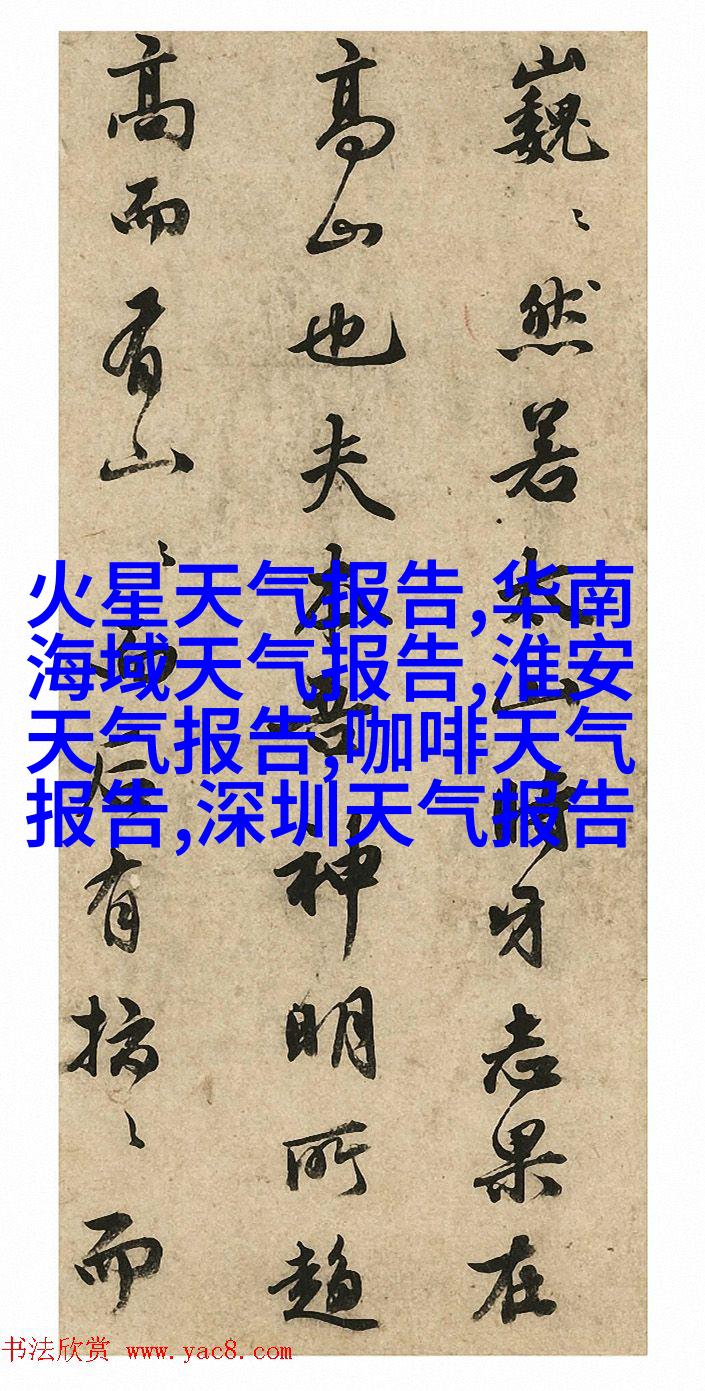 巍〻然若太山時牙志果在
高山也夫本吾神明所趍
高而有山〻而后有搞〻而
火星天气报告,华南
海域天气报告,淮安
天气报告,咖啡天气
报告,深圳天气报告
书法欣赏 www.yac8.com